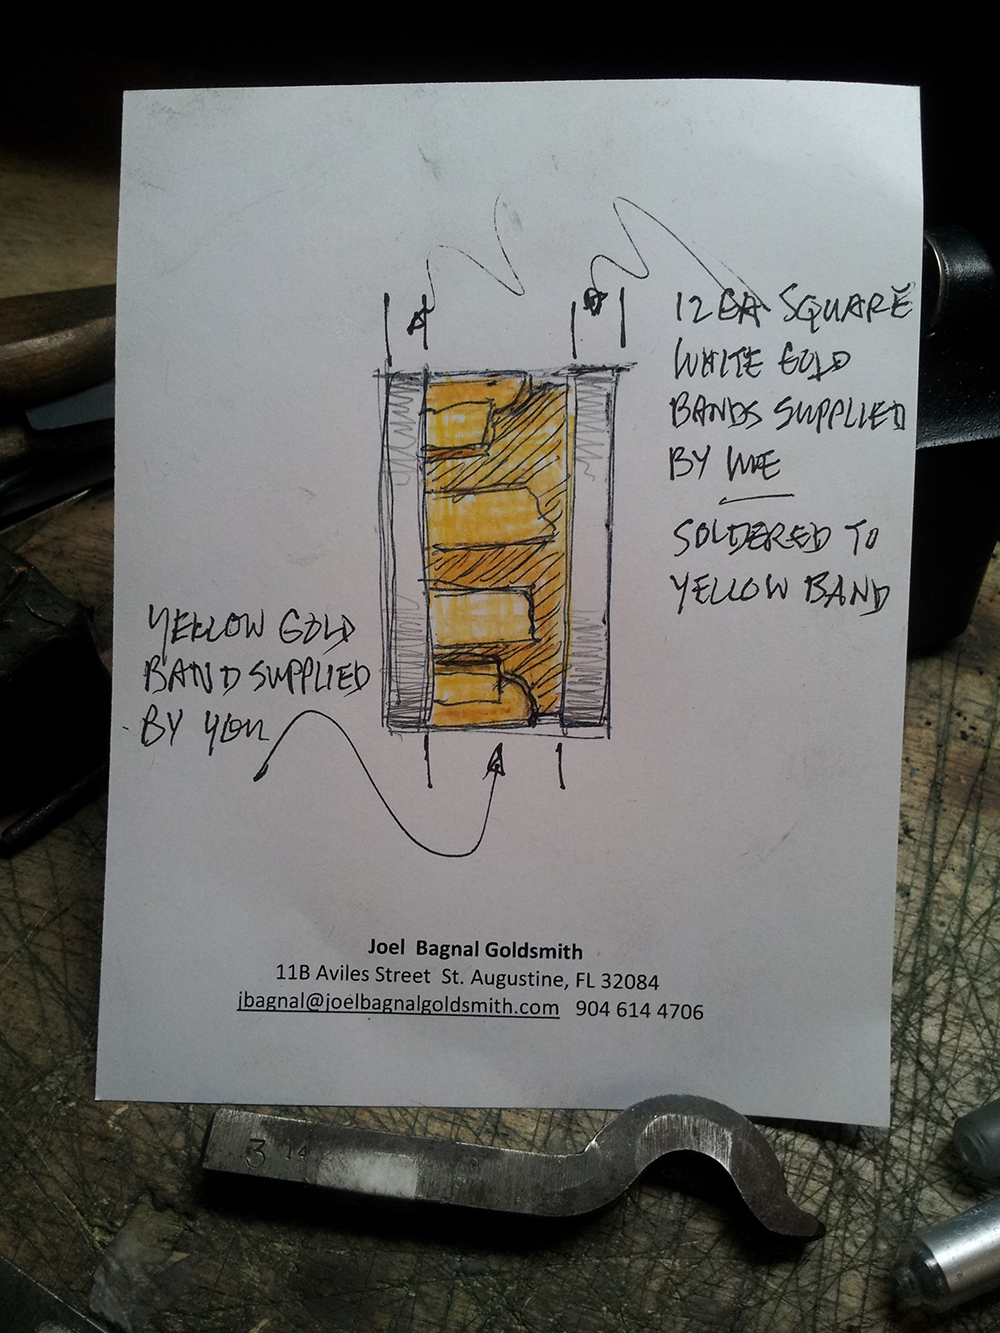 12 GA SQUARE
WHITE GOLD
BANDS SUPPLIED
BY ME
SOLDERED TO
YELLOW BAND
YELLOW GOLD
BAND SUPPLIED
BY YOU
Joel Bagnal Goldsmith
11B Aviles Street St. Augustine, FL 32084
jbagnal@joelbagnalgoldsmith.com 904 614 4706
3 14